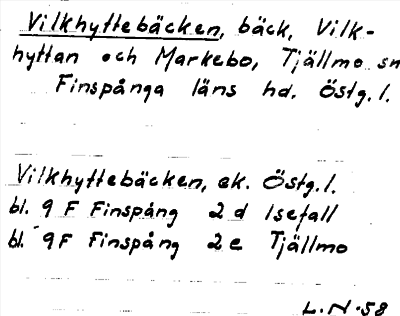 Vilkhyttebäcken, bäck, Vilk-
hyttan och Markebo, Tjällmo sn
Finspånga läns hd. Östg. l.
Vilkhyttebäcken, ek. Östg. l.
bl. 9 F Finspång 2 d Isefall
bl. 9 F Finspång 2 e Tjällmo
L. N. 58